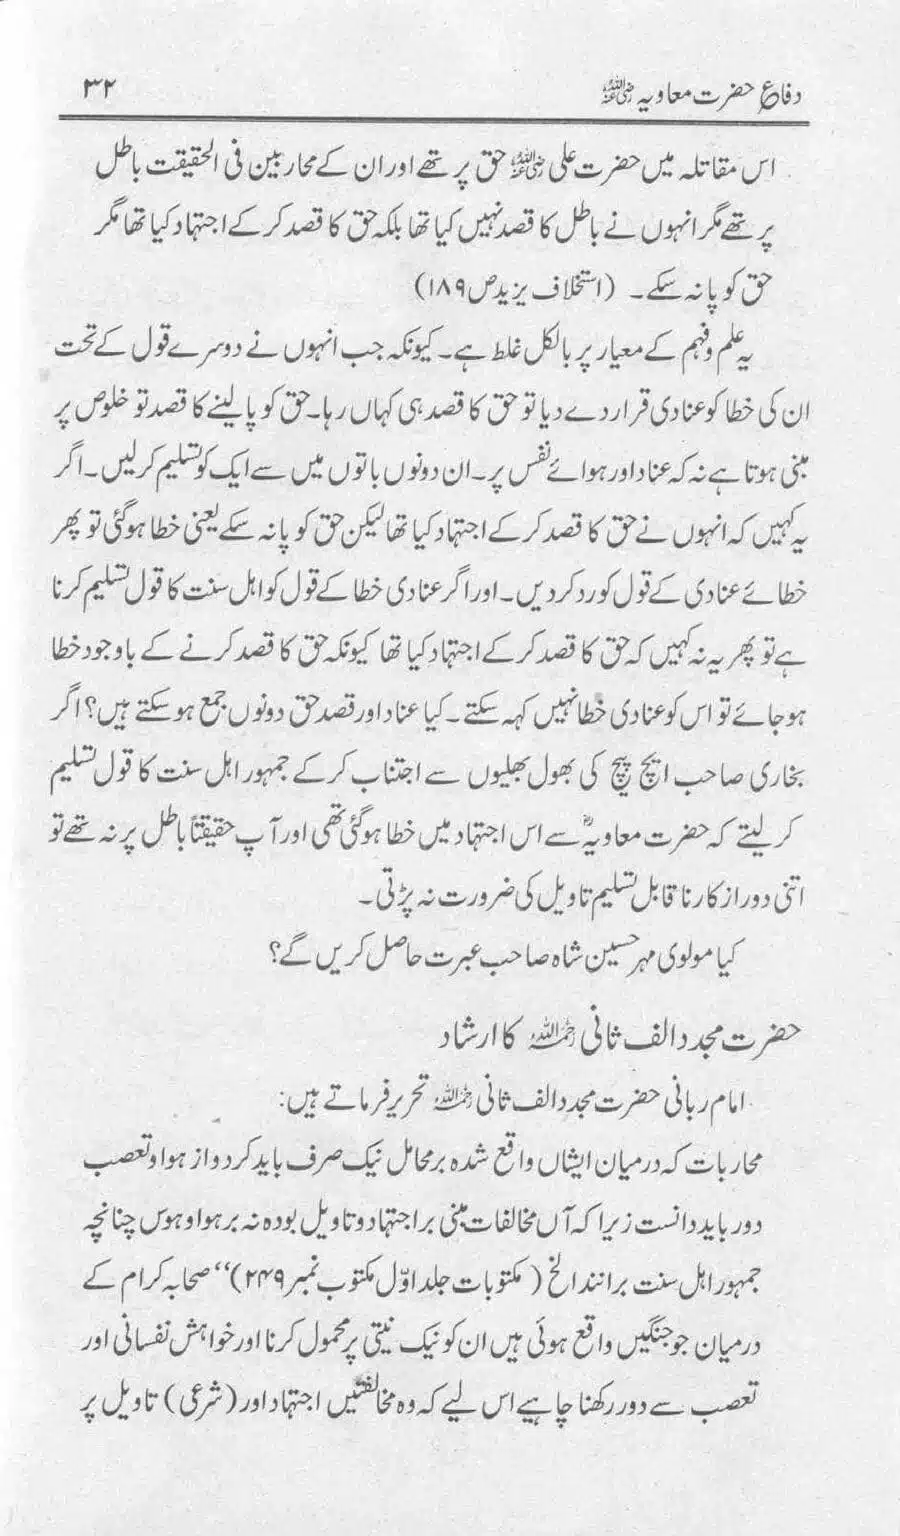 دفاعِ حضرت معاویہ رضی اللہ عنہ
۳۲
اس مقاتلہ میں حضرت علی رضی اللہ عنہ حق پر تھے اور ان کے محاربین فی الحقیقت باطل
پر تھے مگر انہوں نے باطل کا قصد نہیں کیا تھا بلکہ حق کا قصد کر کے اجتہاد کیا تھا مگر
حق کو پا نہ سکے۔ (استخلاف یزید ص ۱۸۹)
یہ علم و فہم کے معیار پر بالکل غلط ہے۔ کیونکہ جب انہوں نے دوسرے قول کے تحت
ان کی خطا کو عنادی قرار دے دیا تو حق کا قصد ہی کہاں رہا۔ حق کو پالینے کا قصد تو خلوص پر
مبنی ہوتا ہے نہ کہ عناد اور ہوائے نفس پر۔ ان دونوں باتوں میں سے ایک کو تسلیم کرلیں۔ اگر
یہ کہیں کہ انہوں نے حق کا قصد کر کے اجتہاد کیا تھا لیکن حق کو پا نہ سکے یعنی خطا ہوگئی تو پھر
خطائے عنادی کے قول کو رد کر دیں۔ اور اگر عنادی خطا کے قول کو اہل سنت کا قول تسلیم کرنا
ہے تو پھر یہ نہ کہیں کہ حق کا قصد کر کے اجتہاد کیا تھا کیونکہ حق کا قصد کرنے کے باوجود خطا
ہو جائے تو اس کو عنادی خطا نہیں کہہ سکتے۔ کیا عناد اور قصد حق دونوں جمع ہو سکتے ہیں؟ اگر
بخاری صاحب ایچ پیچ کی بھول بھلیوں سے اجتناب کر کے جمہور اہل سنت کا قول تسلیم
کر لیتے کہ حضرت معاویہؓ سے اس اجتہاد میں خطا ہوگئی تھی اور آپ حقیقتاً باطل پر نہ تھے تو
اتنی دور از کار ناقابل تسلیم تاویل کی ضرورت نہ پڑتی۔
کیا مولوی مہر حسین شاہ صاحب عبرت حاصل کریں گے؟
حضرت مجدد الف ثانی رحمہ اللہ کا ارشاد
امام ربانی حضرت مجدد الف ثانی رحمہ اللہ تحریر فرماتے ہیں:
محاربات کہ درمیان ایشاں واقع شدہ بر محامل نیک صرف باید کرد و از ہوا و تعصب
دور باید دانست زیرا کہ آں مخالفات مبنی بر اجتہاد و تاویل بودہ نہ بر ہوا و ہوس چنانچہ
جمہور اہل سنت بر انند الخ (مکتوبات جلد اوّل مکتوب نمبر ۲۴۹)‘‘ صحابہ کرام کے
درمیان جو جنگیں واقع ہوئی ہیں ان کو نیک نیتی پر محمول کرنا اور خواہش نفسانی اور
تعصب سے دور رکھنا چاہیے اس لیے کہ وہ مخالفتیں اجتہاد اور (شرعی) تاویل پر